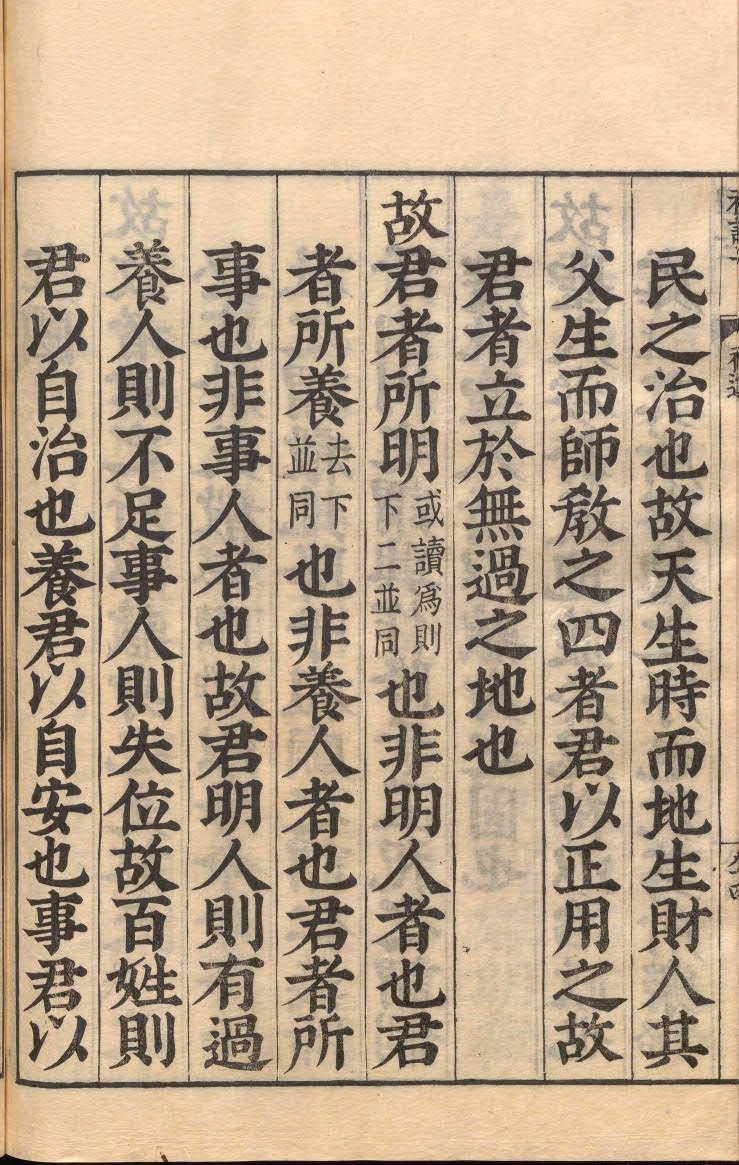 民之治也故天生時而地生財人其
父生而師敎之四者君以正用之故
君者立於無過之地也
故君者所明或讀爲則下二並同也非明人者也君
者所養去下並同也非養人者也君者所
事也非事人者也故君明人則有過
養人則不足事人則失位故百姓則
君以自治也養君以自安也事君以